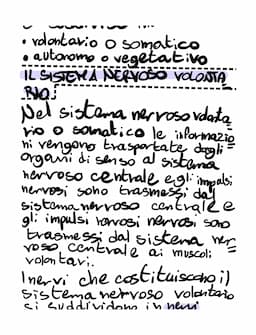 • volontario o somatico
• autonomo o vegetativo
IL SISTEMA NERVOSO VOLONTA
RIO:
Nel sistema nervoso volonta=
rio o somatico le informazio=
ni vengono trasportate dagli
organi di senso al sistema
nervoso centrale e gli impulsi
nervosi sono trasmessi dal
sistema nervoso centrale e
gli impulsi nervosi sono
trasmessi dal sistema ner=
voso centrale ai muscoli
volontari.
I nervi che costituiscono il
sistema nervoso volontario
si suddividono in nervi